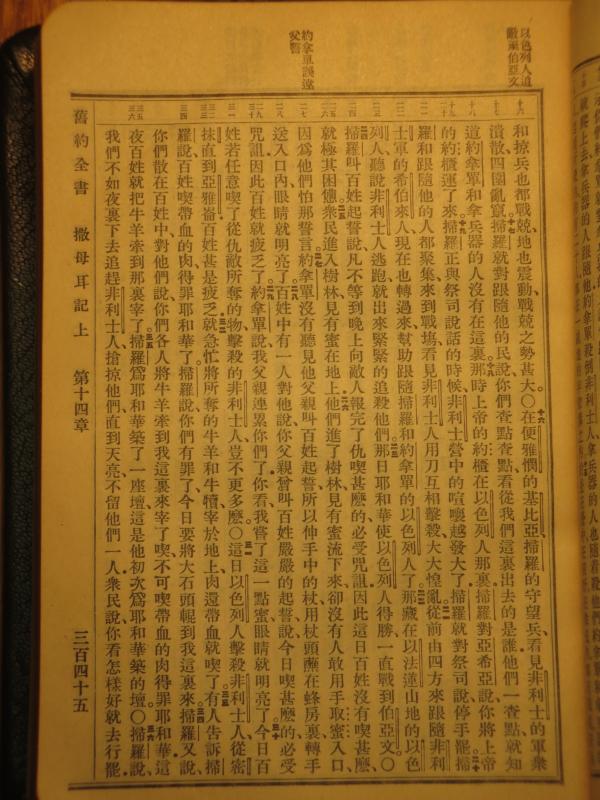 以色列人追
敵至伯亞文
約拿單誤違
父誓
和掠兵也都戰兢、地也震動、戰兢之勢甚大。〇在便雅憫的基比亞、掃羅的守望兵看見非利士的軍衆
潰散、四圍亂竄、掃羅就對跟隨他的民說、你們查點查點、看從我們這裏出去的是誰、他們一查點、就知
道約拿單和拿兵器的人沒有在這裏、那時上帝的約櫃在以色列人那裏、掃羅對亞希亞說、你將上帝
的約櫃運了來、掃羅正與祭司說話的時候、非利士營中的喧嚷越發大了、掃羅就對祭司說、停手罷、掃
羅和跟隨他的人都聚集、來到戰塲、看見非利士人用刀互相擊殺、大大惶亂、從前由四方來跟隨非利
士軍的希伯來人現在也轉過來、幫助跟隨掃羅和約拿單的以色列人了、那藏在以法蓮山地的以色
列人聽說非利士人逃跑、就出來緊緊的追殺他們、那日耶和華使以色列人得勝、一直戰到伯亞文。〇
掃羅叫百姓起誓說、凡不等到晚上向敵人報完了仇喫甚麼的、必受咒詛、因此這日百姓沒有喫甚麼、
就極其困憊、衆民進入樹林、見有蜜在地上、他們進了樹林、見有蜜流下來、卻沒有人敢用手取蜜入口、
因爲他們怕那誓言、約拿單沒有聽見他父親叫百姓起誓、所以伸手中的杖、用杖頭蘸在蜂房裏、轉手
送入口內、眼睛就明亮了、百姓中有一人對他說、你父親曾叫百姓嚴嚴的起誓、說今日喫甚麼的、必受
咒詛、因此百姓就疲乏了、約拿單說、我父親連累你們了、你看、我嘗了這一點蜜、眼睛就明亮了、今日百
姓若任意喫了從仇敵所奪的物、擊殺的非利士人、豈不更多麼。〇這日以色列人擊殺非利士人、從密
抹直到亞雅崙、百姓甚是疲乏、就急忙將所奪的牛羊和牛犢、宰於地上、肉還帶血就喫了、有人告訴掃
羅說、百姓喫帶血的肉、得罪耶和華了、掃羅說、你們有罪了、今日要將大石頭輥到我這裏來、掃羅又說、
你們散在百姓中、對他們說、你們各人將牛羊牽到我這裏來宰了喫、不可喫帶血的肉、得罪耶和華、這
夜百姓就把牛羊牽到那裏宰了、掃羅爲耶和華築了一座壇、這是他初次爲耶和華築的壇。〇掃羅說、
我們不如夜裏下去追趕非利士人、搶掠他們、直到天亮、不留他們一人、衆民說、你看怎樣好就去行罷、
舊約全書 撒母耳記上 第十四章 三百四十五